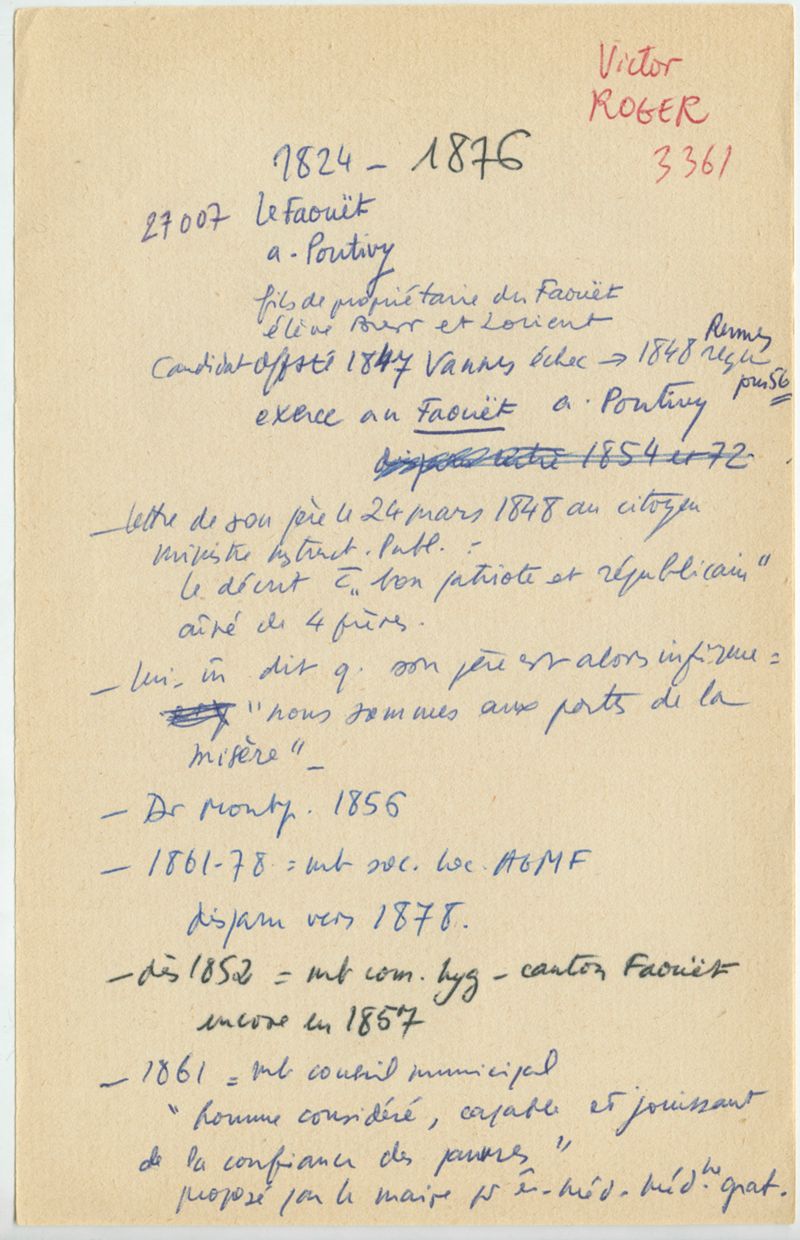 Victor
ROGER
3361
1824 - 1876
27007 Le Faouët
a. Pontivy
fils de propriétaire du Faouët
élève Brest et Lorient
Candidat offsté 1847 Vannes échec → 1848 Rennes reçu
puis 56
exerce au Faouët a. Pontivy
1854 et 72
- lettre de son père le 24 mars 1848 au citoyen
ministre instruct. Publ. :
le décrit "bon patriote et républicain"
aîné de 4 frères.
- lui-m dit q. son père est alors infirme =
"nous sommes aux portes de la
misère" -
- Dr Montp. 1856
- 1861-78 = mb soc. loc. AGMF
disparu vers 1878.
- dès 1852 = mb com. hyg - canton Faouët
encore en 1857
- 1861 = mb conseil municipal
"homme considéré, capable et jouissant
de la confiance des pauvres"
proposé par le maire pr méd. grat.